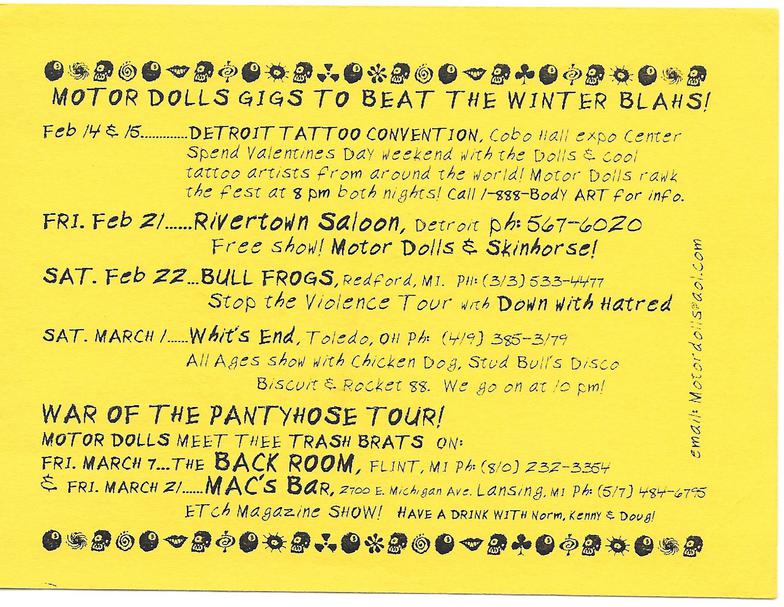 MOTOR DOLLS GIGS TO BEAT THE WINTER BLAHS!
Feb 14 & 15............DETROIT TATTOO CONVENTION, Cobo Hall expo Center
Spend Valentines Day weekend with the Dolls & cool
tattoo artists from around the world! Motor Dolls rawk
the fest at 8 pm both nights! Call 1-888-Body ART for info.
FRI. Feb 21......Rivertown Saloon, Detroit ph: 567-6020
Free show! Motor Dolls & Skinhorse!
SAT. Feb 22...BULL FROGS, Redford, MI. PH: (313) 533-4477
Stop the Violence Tour with Down With Hatred
SAT. MARCH 1......Whit's End, Toledo, OH Ph: (419) 385-3179
All Ages show with Chicken Dog, Stud Bull's Disco
Biscuit & Rocket 88. We go on at 10 pm!
WAR OF THE PANTYHOSE TOUR!
MOTOR DOLLS MEET THEE TRASH BRATS ON:
FRI. MARCH 7...THE BACK ROOM, FLINT, MI Ph: (810) 232-3354
& FRI. MARCH 21......MAC's BaR, 2700 E. Michigan Ave. Lansing, MI Ph: (517) 484-6795
ETch Magazine SHOW! HAVE A DRINK WITH Norm, Kenny & Doug!
email: Motordolls@aol.com